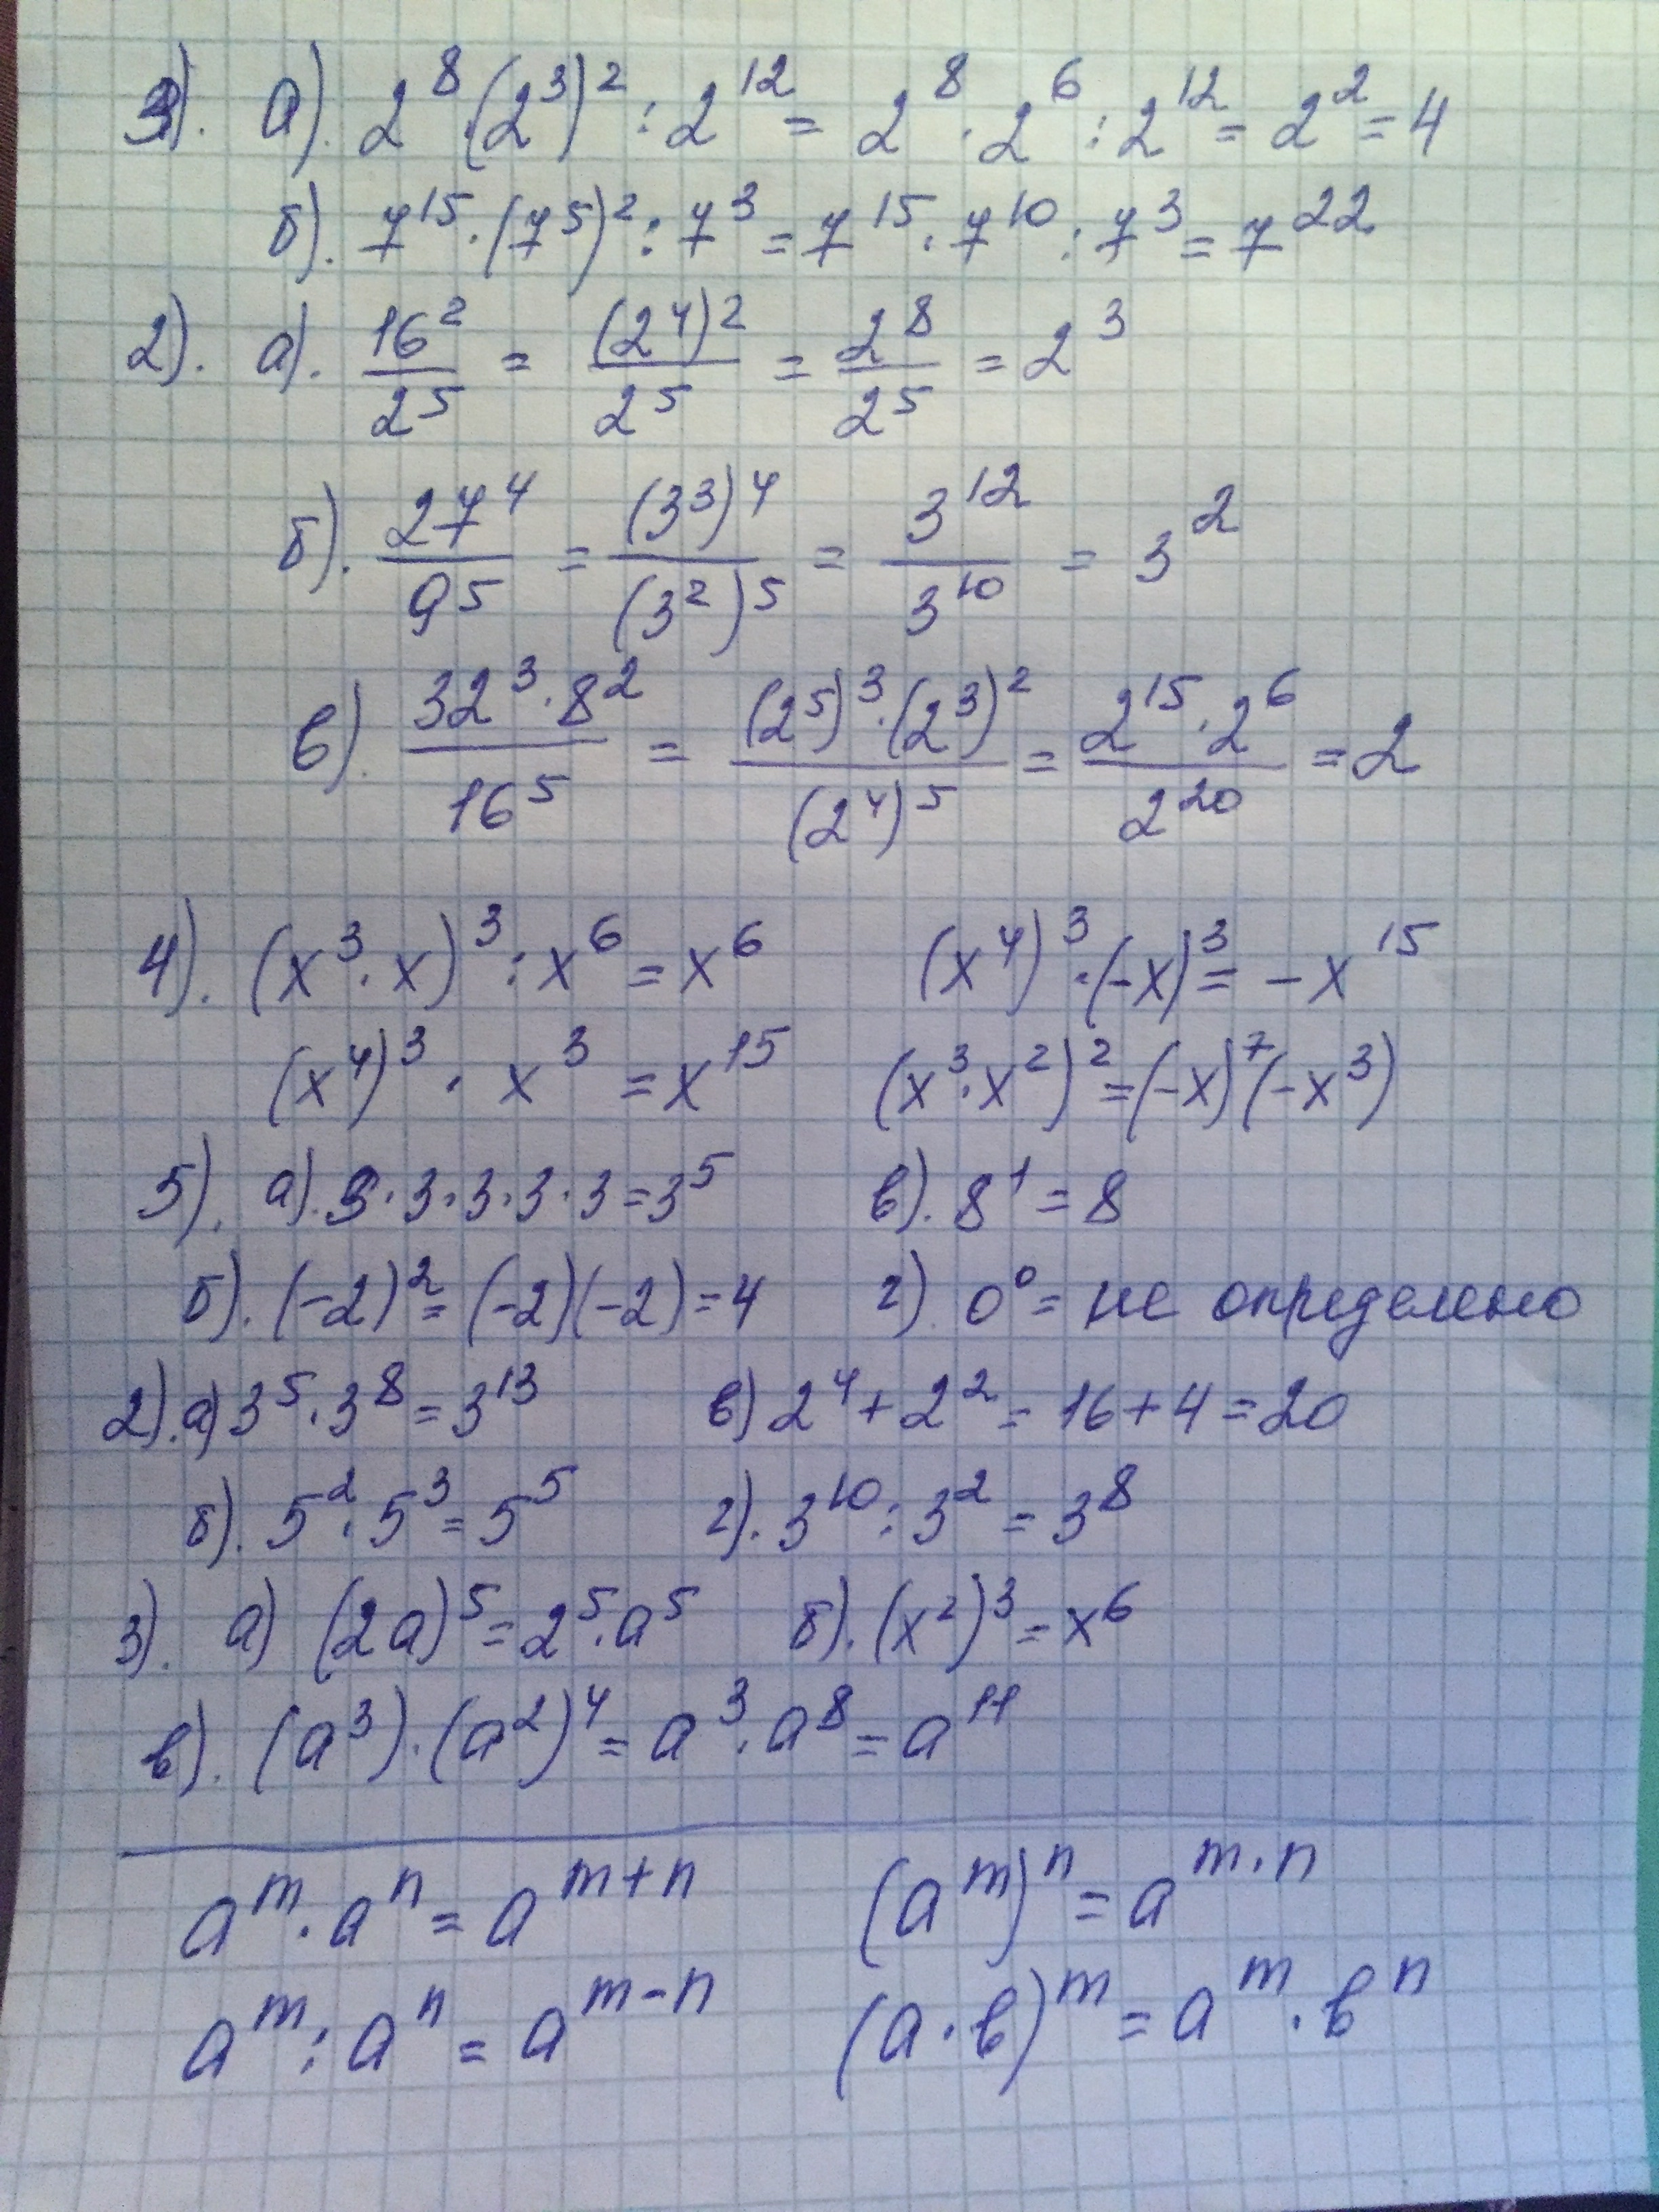 3). а). 2^8·(2^3)^2 : 2^12 = 2^8 · 2^6 : 2^12 = 2^2 = 4
б). 7^15 · (7^5)^2 : 7^3 = 7^15 · 7^10 : 7^3 = 7^22
2). а). 16^2/2^5 = (2^4)^2/2^5 = 2^8/2^5 = 2^3
б). 27^4/9^5 = (3^3)^4/(3^2)^5 = 3^12/3^10 = 3^2
в). 32^3·8^2/16^5 = (2^5)^3·(2^3)^2/(2^4)^5 = 2^15·2^6/2^20 = 2
4). (x^3·x)^3 : x^6 = x^6 (x^4)^3·(-x)^3 = -x^15
(x^4)^3 · x^3 = x^15 (x^3·x^2)^2 = (-x)^7(-x^3)
5). а). 3·3·3·3·3 = 3^5 в). 8^1 = 8
б). (-2)^2 = (-2)(-2) = 4 г). 0^0 = не определено
2). а) 3^5·3^8 = 3^13 в) 2^4 + 2^2 = 16 + 4 = 20
б). 5^2·5^3 = 5^5 г). 3^10 : 3^2 = 3^8
3). а) (2a)^5 = 2^5·a^5 б). (x^2)^3 = x^6
в). (a^3)·(a^2)^4 = a^3·a^8 = a^11
a^m · a^n = a^m+n (a^m)^n = a^m·n
a^m : a^n = a^m-n (a·b)^m = a^m · b^n